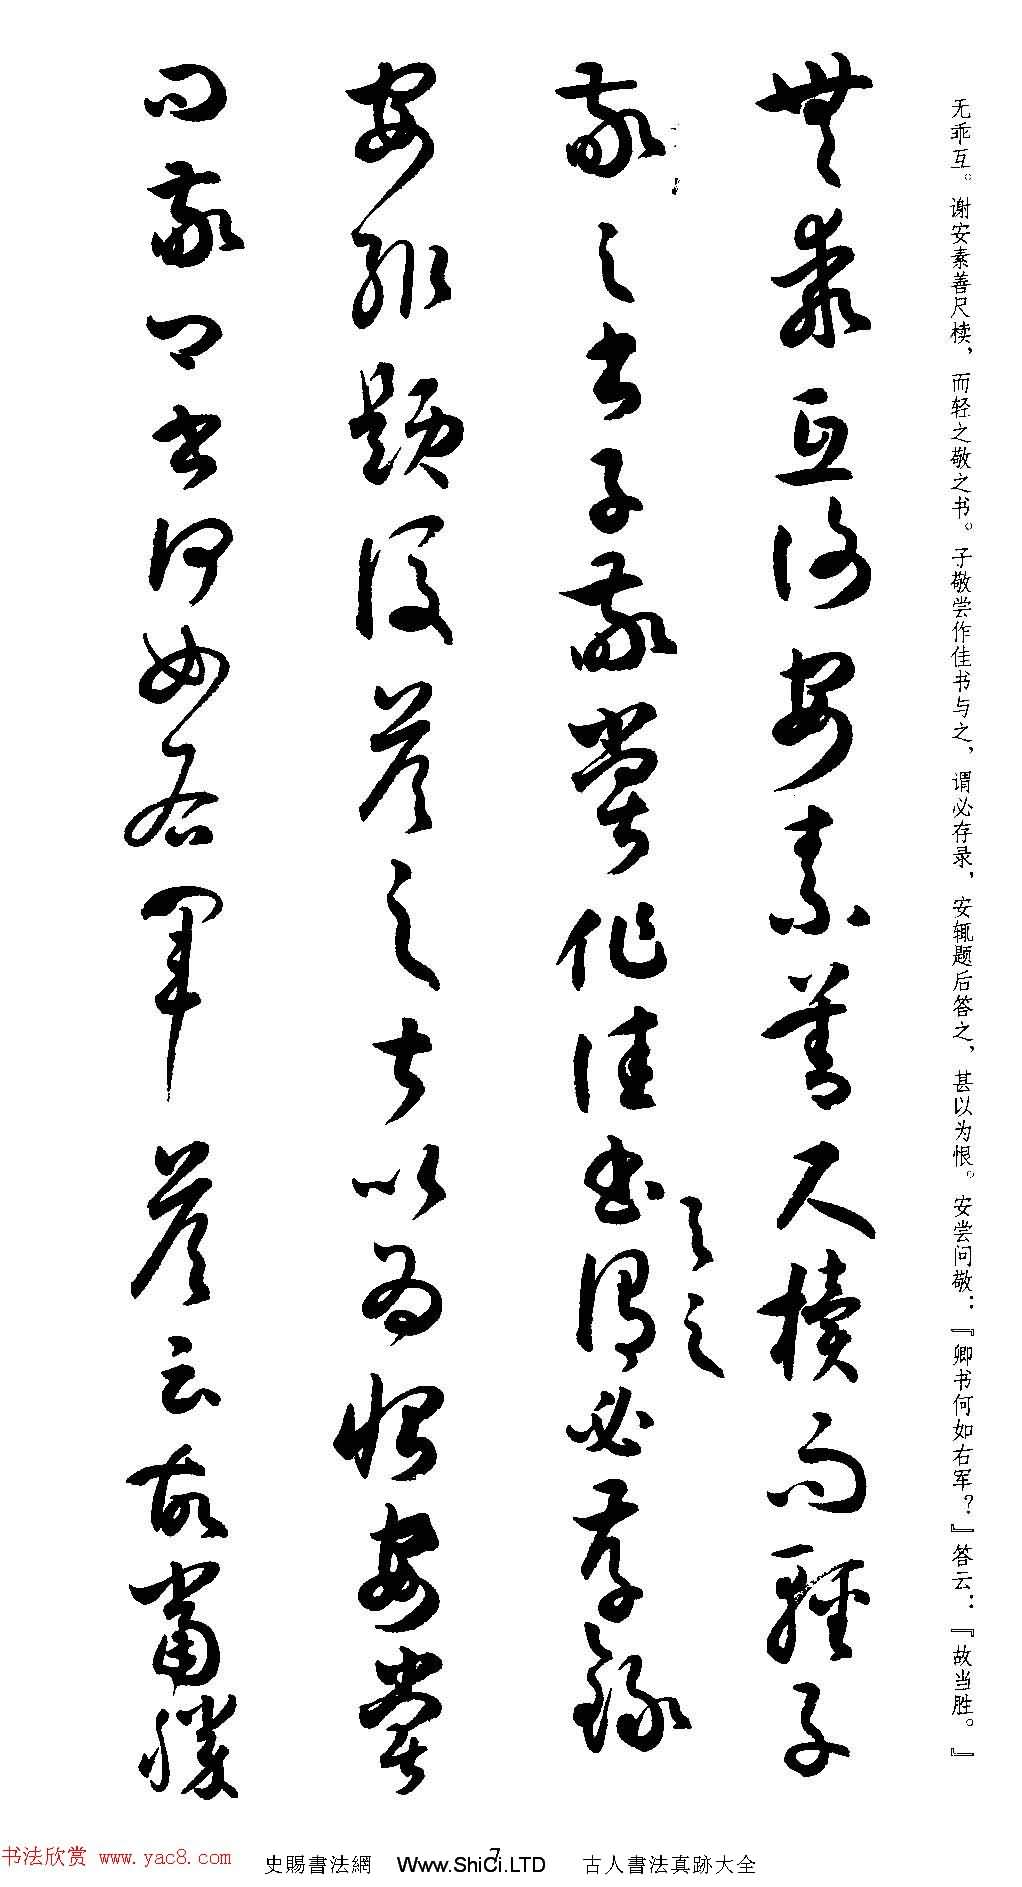 无乖互。谢安素善尺椟，而轻之敬之书。子敬尝作佳书与之，谓必存录，安辄题后答之，甚以为恨。安尝问敬：『卿书何如右军？』答云：『故当胜。』
無乖互谢安素善尺櫝而輕子
敬之書子敬嘗作佳書
与之
謂必存錄
安輒題後答之甚以為恨安嘗
問敬卿書何如右軍答云故當勝
书法欣赏 www.yac8.com
史賜書法網 Www.ShiCi.LTD 古人書法真跡大全
7